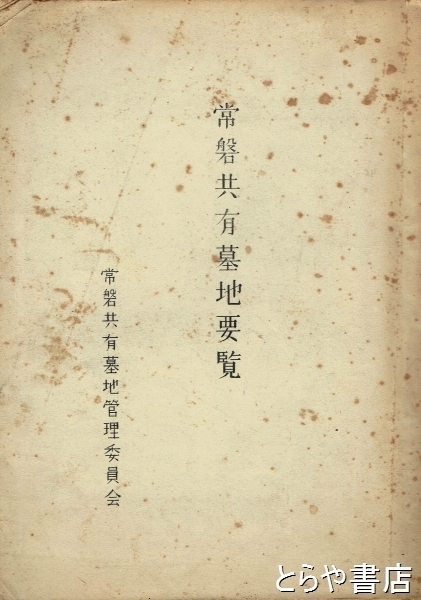 常磐共有墓地要覧
常磐共有墓地管理委員会
とらや書店